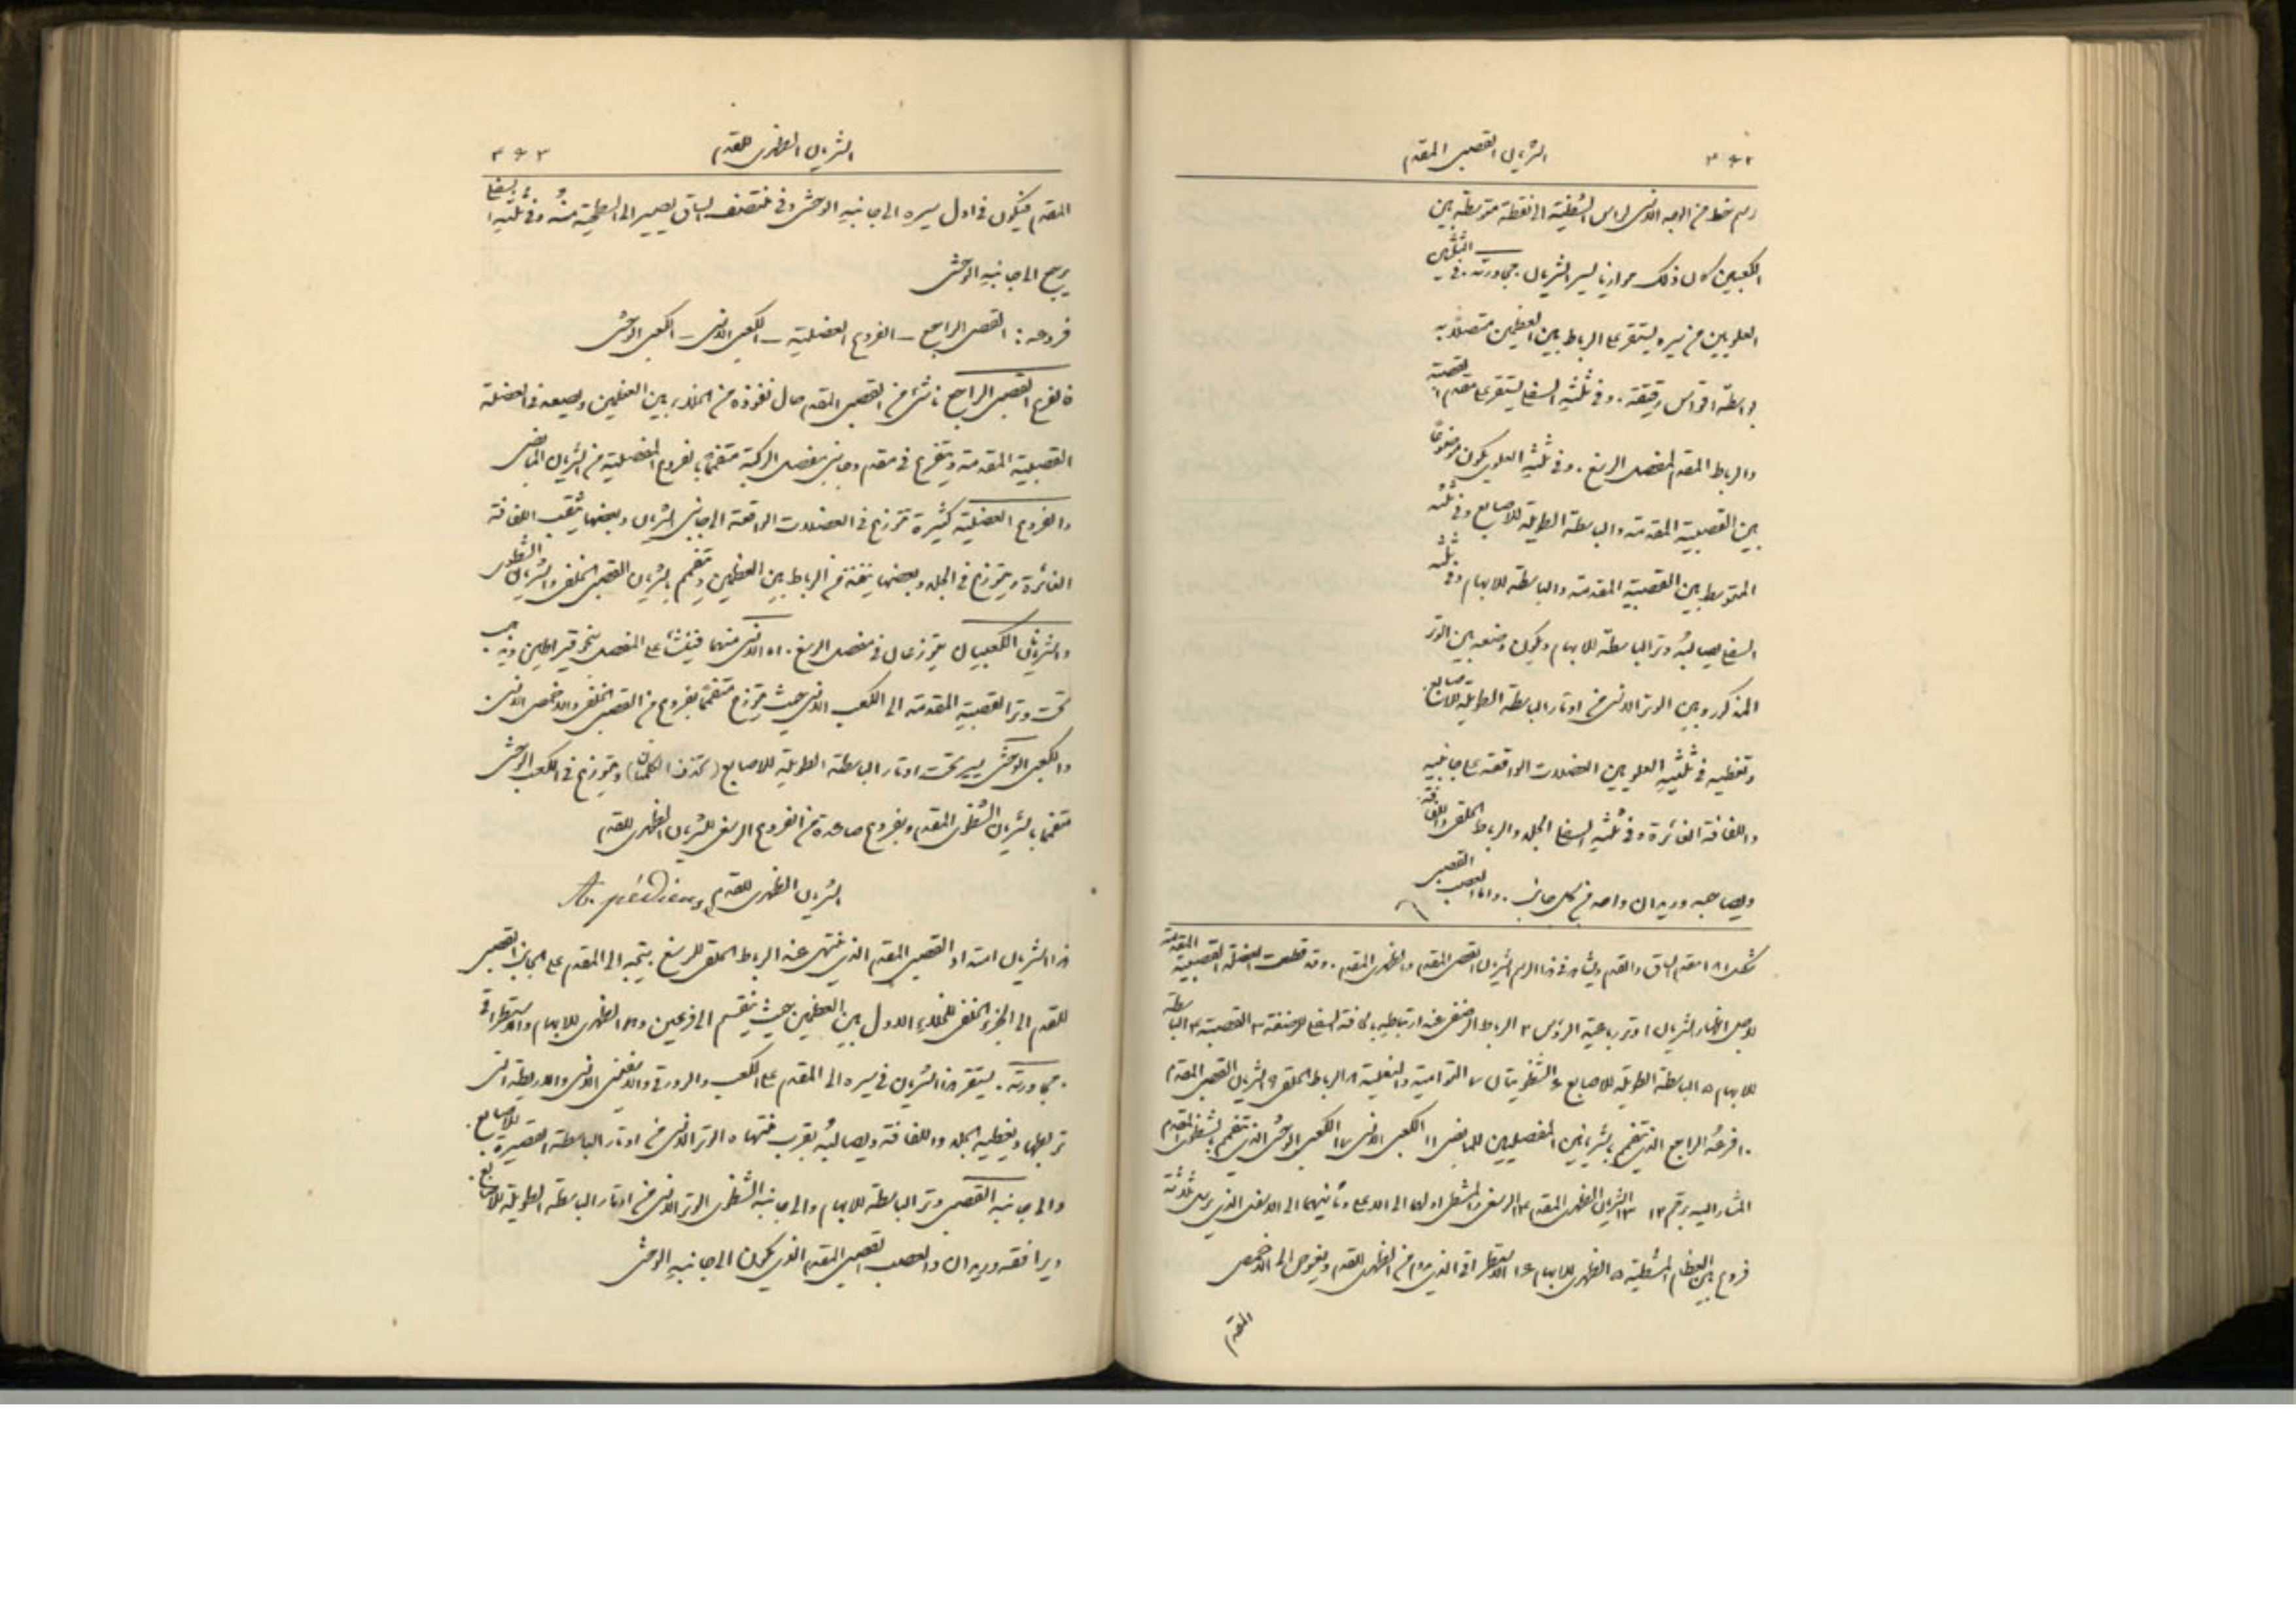 ٣٩٢ الشريان القصبي المقدم
رسم خط من الوجه الانسي لراس الشظية الى نقطة متوسطة بين
الكعبين كان ذلك موازيا لسير الشريان. مجاورته. في الثلثين
العلويين من سيره يستقر على الرباط بين العظمين متصلا به
بواسطة اقواس رقيقة. وفي ثلثه السفلي يستقر على مقدم القصبة
والرباط المقدم لمفصل الرسغ. وفي ثلثه العلوي يكون موضوعا
بين القصبية المقدمة والباسطة الطويلة للاصابع وفي ثلثه
المتوسط بين القصبية المقدمة والباسطة للابهام وفي ثلثه
السفلي يصالبه وتر الباسطة للابهام ويكون وضعه بين الوتر
المذكور وبين الوتر الانسي من اوتار الباسطة الطويلة للاصابع.
وتغطيه في ثلثيه العلويين العضلات الواقعة على جانبيه
واللفافة الغائرة وفي ثلثه السفلي الجلد والرباط الحلقي واللفافة.
ويصاحبه وريدان واحد من كل جانب. واما العصب القصبي
شكل ١٨١ مقدم الساق والقدم ويشاهد في هذا الرسم الشريان القصبي المقدم والظهري المقدم. وقد قطعت العضلة القصبية المقدمة
لاجل اظهار الشريان ١ وتر رباعية الرؤس ٢ الرباط الرضفي عند ارتباطه بحافة السفلى للرضفة ٣ القصبية ٤ الباسطة
للابهام ٥ الباسطة الطويلة للاصابع ٦ الشظويتان ٧ التوامية والنعلية ٨ الرباط الحلقي ٩ الشريان القصبي المقدم
١٠ فرعه الراجع الذي يتفمم بالشريانين المفصليين للمابضي ١١ الكعبي الانسي ١٢ الكعبي الوحشي الذي يتفمم بالشظوي المقدم
المشار اليه برقم ١٢ ١٣ الشريان الظهري المقدم ١٤ الرسغي والمشطي اولهما الى الاعلى وثانيهما الى الاسفل الذي يرسل ثلاثة
فروع بين العظام المشطية ١٥ الظهري للابهام ١٦ الاستطراقي الذي من الظهري للقدم ويغوص الى الاخمص
المقدم
الشريان الظهري للقدم ٣٩٣
المقدم فيكون في اول سيره الى جانبه الوحشي وفي منتصف الساق يصير الى السطحية منه وفي ثلثه السفلي
يرجع الى جانبه الوحشي
فروعه: القصبي الراجع – الفروع العضلية – الكعبي الانسي – الكعبي الوحشي
فالفرع القصبي الراجع ناشئ من القصبي المقدم حال نفوذه من الخلاء بين العظمين ويصعد في العضلة
القصبية المقدمة ويتفرع في مقدم وجانبي مفصل الركبة متفمما بالفروع المفصلية من الشريان المابضي
والفروع العضلية كثيرة تتوزع في العضلات الواقعة الى جانبي الشريان وبعضها يثقب اللفافة
الغائرة ويتوزع في الجلد وبعضها ينفذ من الرباط بين العظمين ويتفمم بالشريان القصبي الخلفي والشريان الشظوي
والشريانان الكعبيان يتوزعان في مفصل الرسغ. اما الانسي منهما فينشأ على المفصل بنحو قيراطين ويذهب
تحت وتر القصبية المقدمة الى الكعب الانسي حيث يتوزع متفمما بفروع من القصبي الخلفي والاخمصي الانسي.
والكعبي الوحشي يسير تحت اوتار الباسطة الطويلة للاصابع (تحذف الكلمتان) ويتوزع في الكعب الوحشي
متفمما بالشريان الشظوي المقدم وبفروع صاعدة من الفروع الرسغي للشريان الظهري للقدم
الشريان الظهري للقدم A. pédieuse
هذا الشريان امتداد القصبي المقدم الذي ينتهي عند الرباط الحلقي للرسغ. يتجه الى المقدم على الجانب القصبي
للقدم الى الجزء الخلفي للخلاء الاول بين العظمين حيث ينقسم الى فرعين وهما الظهري للابهام والاستطراقي
مجاورته. يستقر هذا الشريان في سيره الى المقدم على الكعب والزورقي والاسفيني الانسي والاربطة التي
تربطها ويغطيه الجلد واللفافة ويصالبه بقرب منتهاه الوتر الانسي من اوتار الباسطة القصيرة للاصابع.
والى جانبه القصبي وتر الباسطة للابهام والى جانبه الشظوي الوتر الانسي من اوتار الباسطة الطويلة للاصابع.
ويرافقه وريدان والعصب القصبي المقدم الذي يكون الى جانبه الوحشي